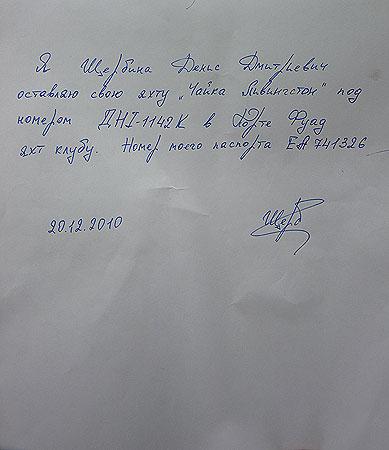 Я Щербина Денис Дмитриевич
оставляю свою яхту „Чайка Ливингстон" под
номером ДНІ-1142К в порте Фуад
яхт клубу. Номер моего паспорта ЕА 741326
20.12.2010 Щерб